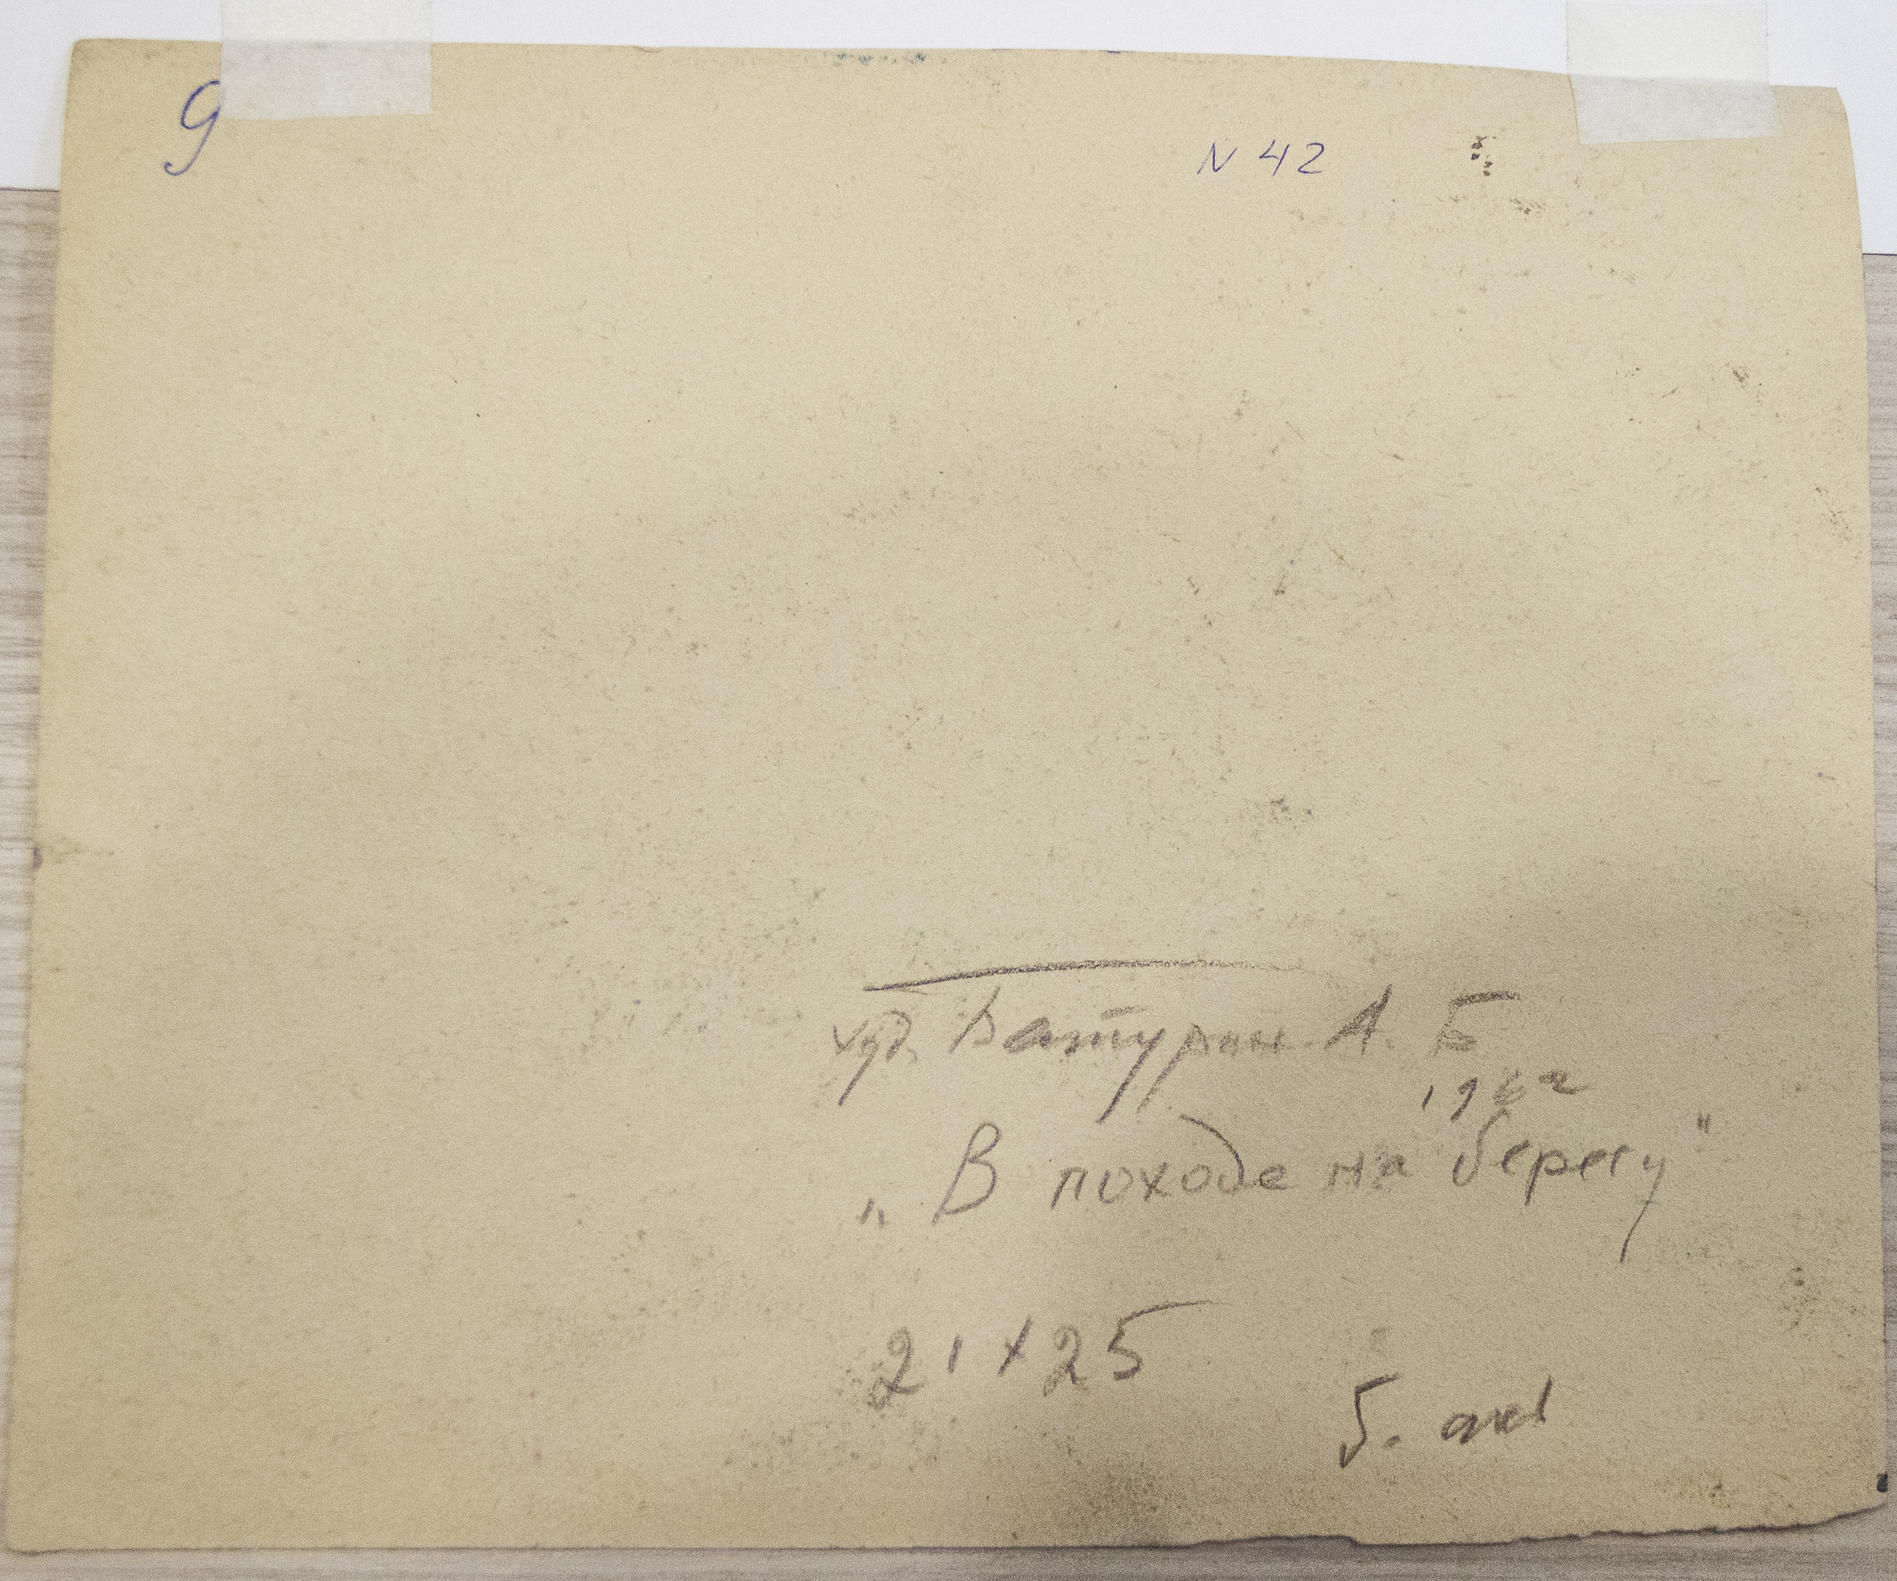 9
N 42
худ. Батурин А. Б
1962
„В походе на берегу"
21 х 25
Б. акв